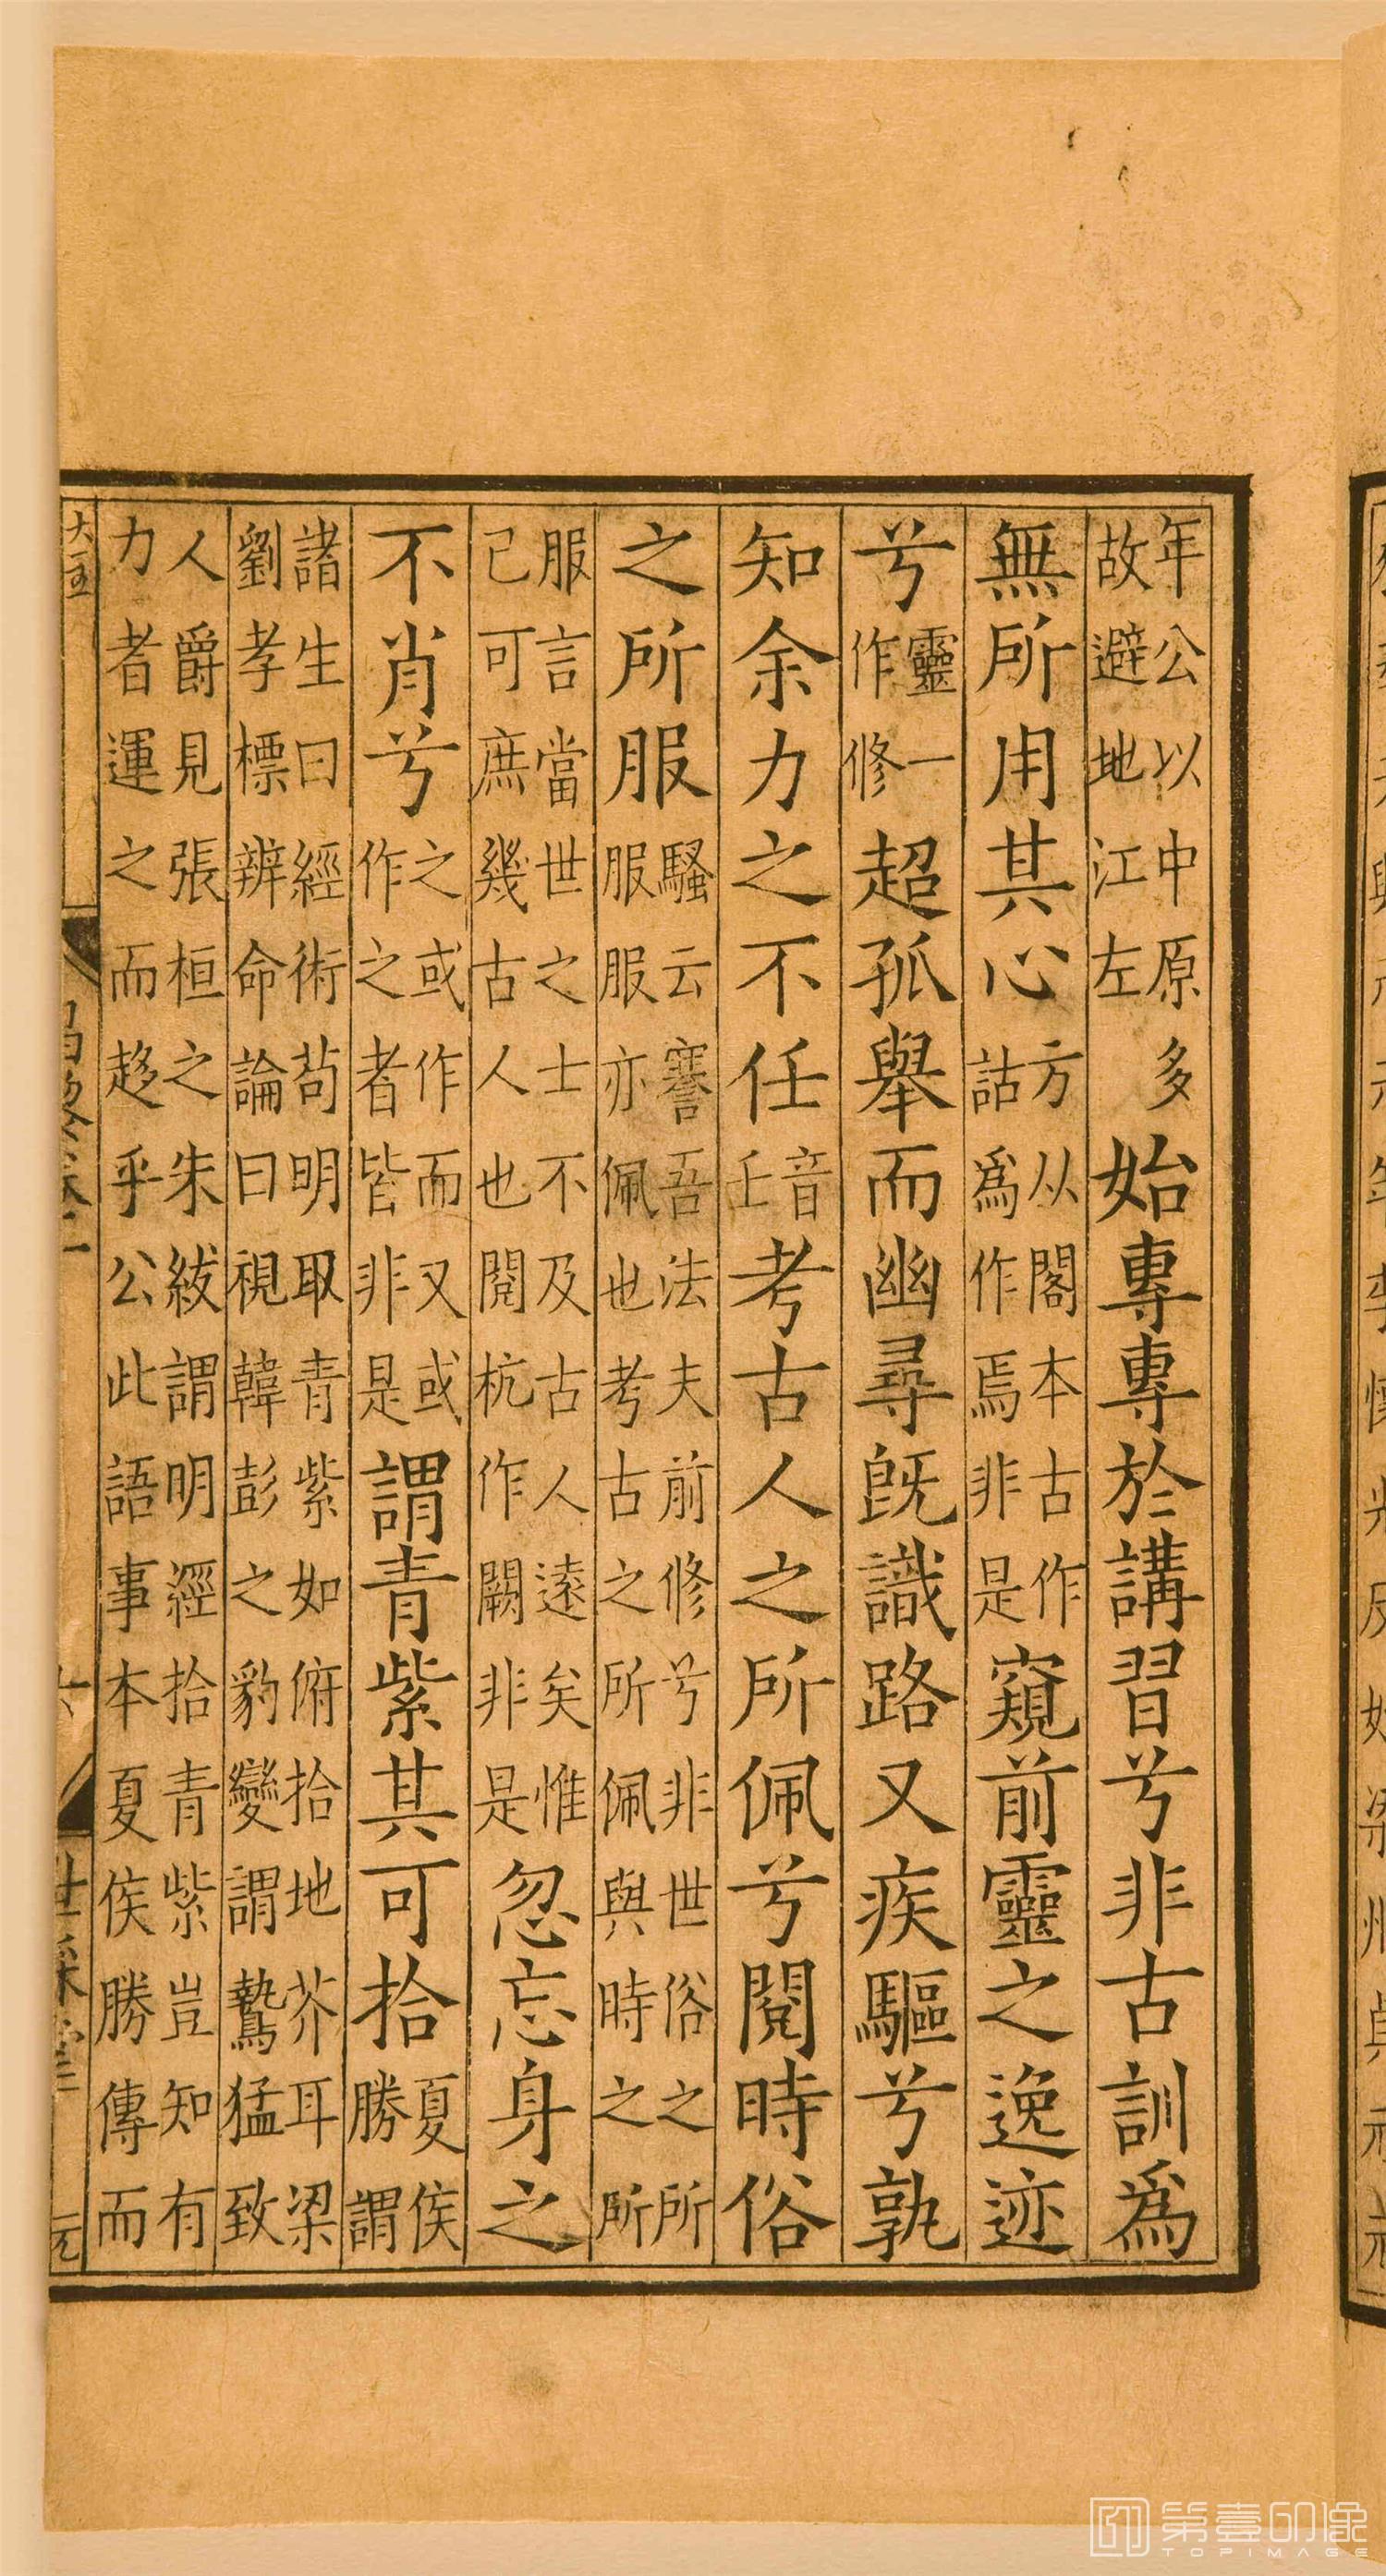 年公以中原多故避地江左始專專於講習兮非古訓爲
無所用其心方从閣本古作詁爲作焉非是窺前靈之逸迹
兮靈一作修超孤舉而幽尋旣識路又疾驅兮孰
知余力之不任音壬考古人之所佩兮閱時俗
之所服騷云謇吾法夫前修兮非世俗之所服服亦佩也考古之所佩與時之所
服言當世之士不及古人遠矣惟已可庶幾古人也閱杭作闕非是忽忘身之
不肖兮之或作而又或作之者皆非是謂青紫其可拾夏侯勝謂
諸生曰經術茍明取青紫如俯拾地芥耳梁劉孝標辨命論曰視韓彭之豹變謂鷙猛致
人爵見張桓之朱紱謂明經拾青紫豈知有力者運之而趍乎公此語事本夏侯勝傳而
大五
昌黎卷一
世綵堂
元
第壹印像
TOPIMAGE